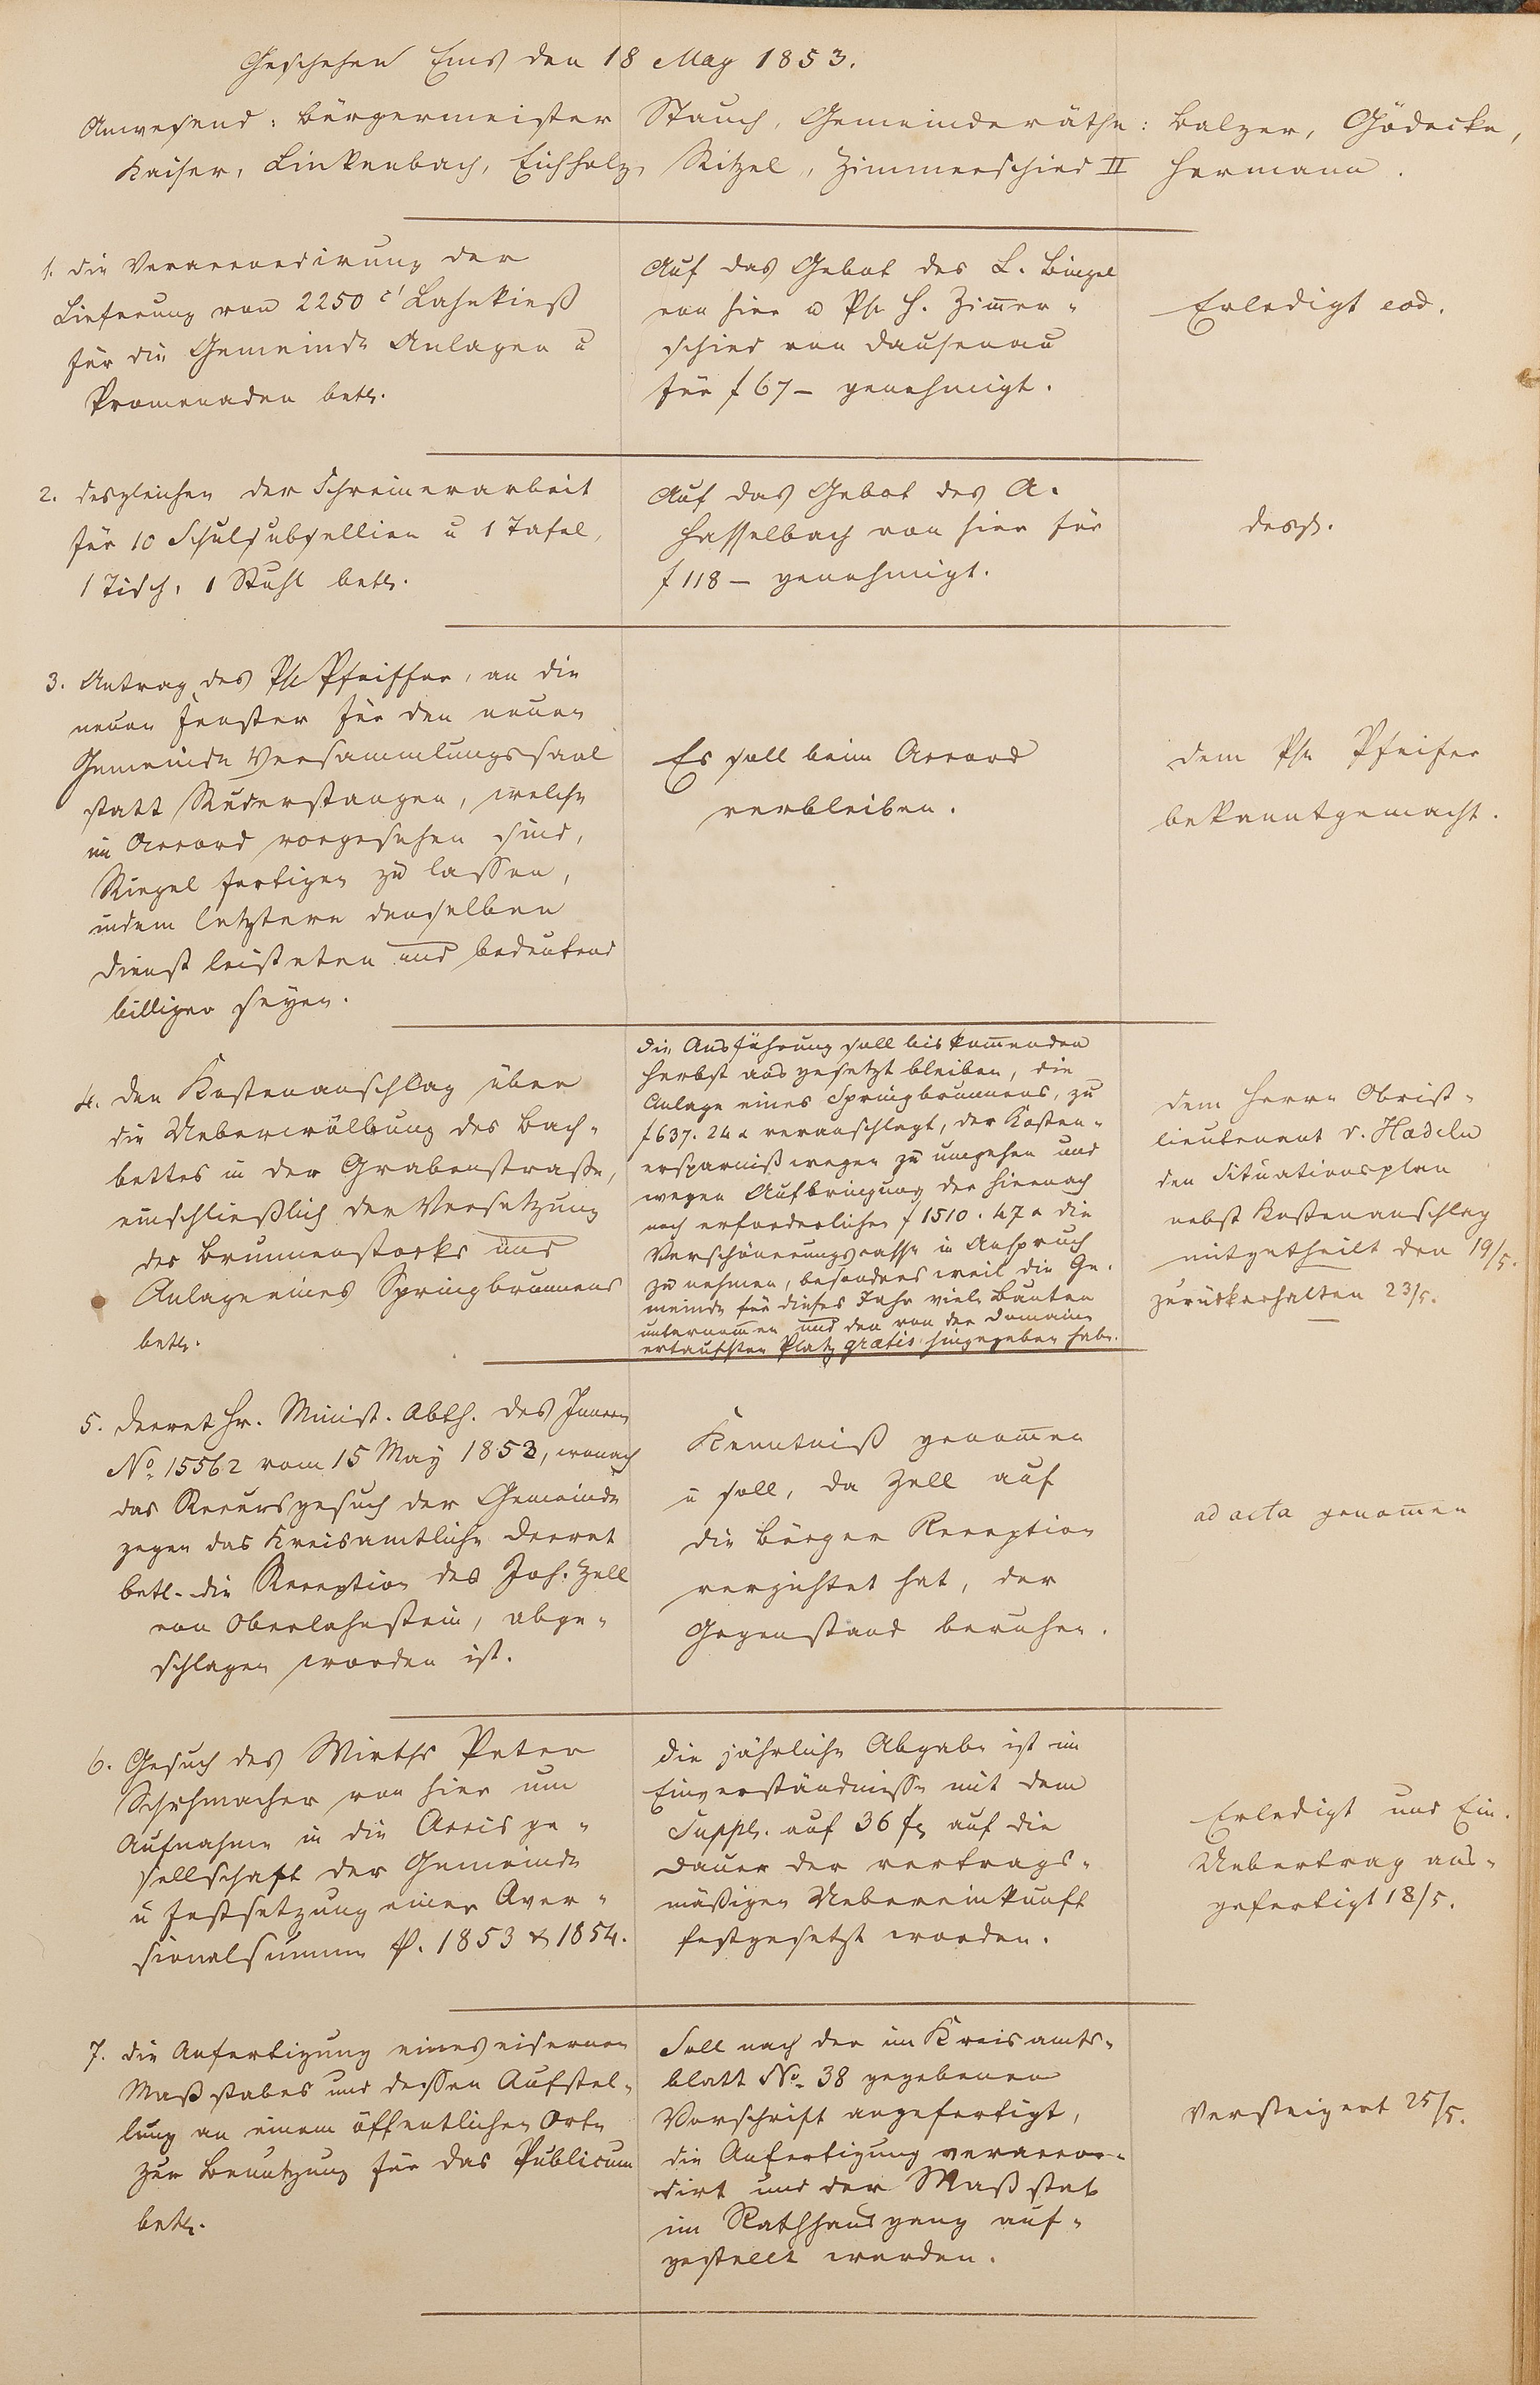 Geschehen Ems den 18 May 1853.
Anwesend: Bürgermeister Stauch, Gemeinderäthe: Balzer, Gödecke,
Kaiser, Linkenbach, Eichholz, Ritzel, Zimmerschied II Hermann.
1. Die Veraccordirung der
Lieferung von 2250 c' Lahnkieß
für die Gemeinde Anlagen u
Promenaden betr.
Auf das Gebot des L. Bingel
von hier u Ph. H. Zimmer-
schied von Dausenau
für f 67 – genehmigt.
Erledigt eod.
2. desgleichen der Schreinerarbeit
für 10 Schulsubsellien u 1 Tafel,
1 Tisch, 1 Stuhl betr.
Auf das Gebot des A.
Hasselbach von hier für
f 118 – genehmigt.
desgl.
3. Antrag des Ph Pfeiffer, an die
neuen Fenster für den neuen
Gemeinde Versammlungssaal
statt Ruderstangen, welche
im Accord vorgesehen sind,
Riegel fertigen zu lassen,
indem letztere denselben
Dienst leisteten und bedeutend
billiger seyen.
Es soll beim Accord
verbleiben.
dem Ph Pfeifer
bekanntgemacht.
4. Den Kostenanschlag über
die Ueberwölbung des Bach-
bettes in der Grabenstraße,
einschließlich der Versetzung
des Brunnenstocks und
Anlage eines Springbrunnens
betr.
Die Ausführung soll bis kommenden
Herbst ausgesetzt bleiben, die
Anlage eines Springbrunnens, zu
f 637. 24 x veranschlagt, der Kosten-
ersparniß wegen zu umgehen und
wegen Aufbringung der hiernach
noch erforderlichen f 1510. 47 x die
Verschönerungscasse in Anspruch
zu nehmen, besonders weil die Ge-
meinde für dieses Jahr viele Bauten
unternommen und den von der Domaine
erkauften Platz gratis hingegeben habe.
dem Herrn Obrist-
lieutenant v. Hadeln
den Situationsplan
nebst Kostenanschlag
mitgetheilt den 19/5.
zurückerhalten 23/5.
5. Decret Hr. Minist. Abth. des Innern
No. 15562 vom 15 May 1853, wonach
das Recursgesuch der Gemeinde
gegen das Kreisamtliche Decret
betr. die Reception des Joh. Zell
von Oberlahnstein, abge-
schlagen worden ist.
Kenntniß genommen
u soll, da Zell auf
die Bürger Reception
verzichtet hat, der
Gegenstand beruhen.
ad acta genommen
6. Gesuch des Wirths Peter
Schuhmacher von hier um
Aufnahme in die Accisge-
sellschaft der Gemeinde
u Festsetzung einer Aver-
sionalsumme p. 1853 & 1854.
Die jährliche Abgabe ist im
Einverständnisse mit dem
Suppl. auf 36 f auf die
Dauer der vertrags-
mäßigen Uebereinkunft
festgesetzt worden.
Erledigt und Ein-
Uebertrag aus-
gefertigt 18/5.
7. Die Anfertigung eines eisernen
Maßstabes und dessen Aufstel-
lung an einem öffentlichen Orte
zur Benutzung für das Publicum
betr.
Soll nach der im Kreisamts-
blatt No. 38 gegebenen
Vorschrift angefertigt,
die Anfertigung veraccor-
dirt und der Maßstab
im Rathhausgang auf-
gestellt werden.
Versteigert 25/5.